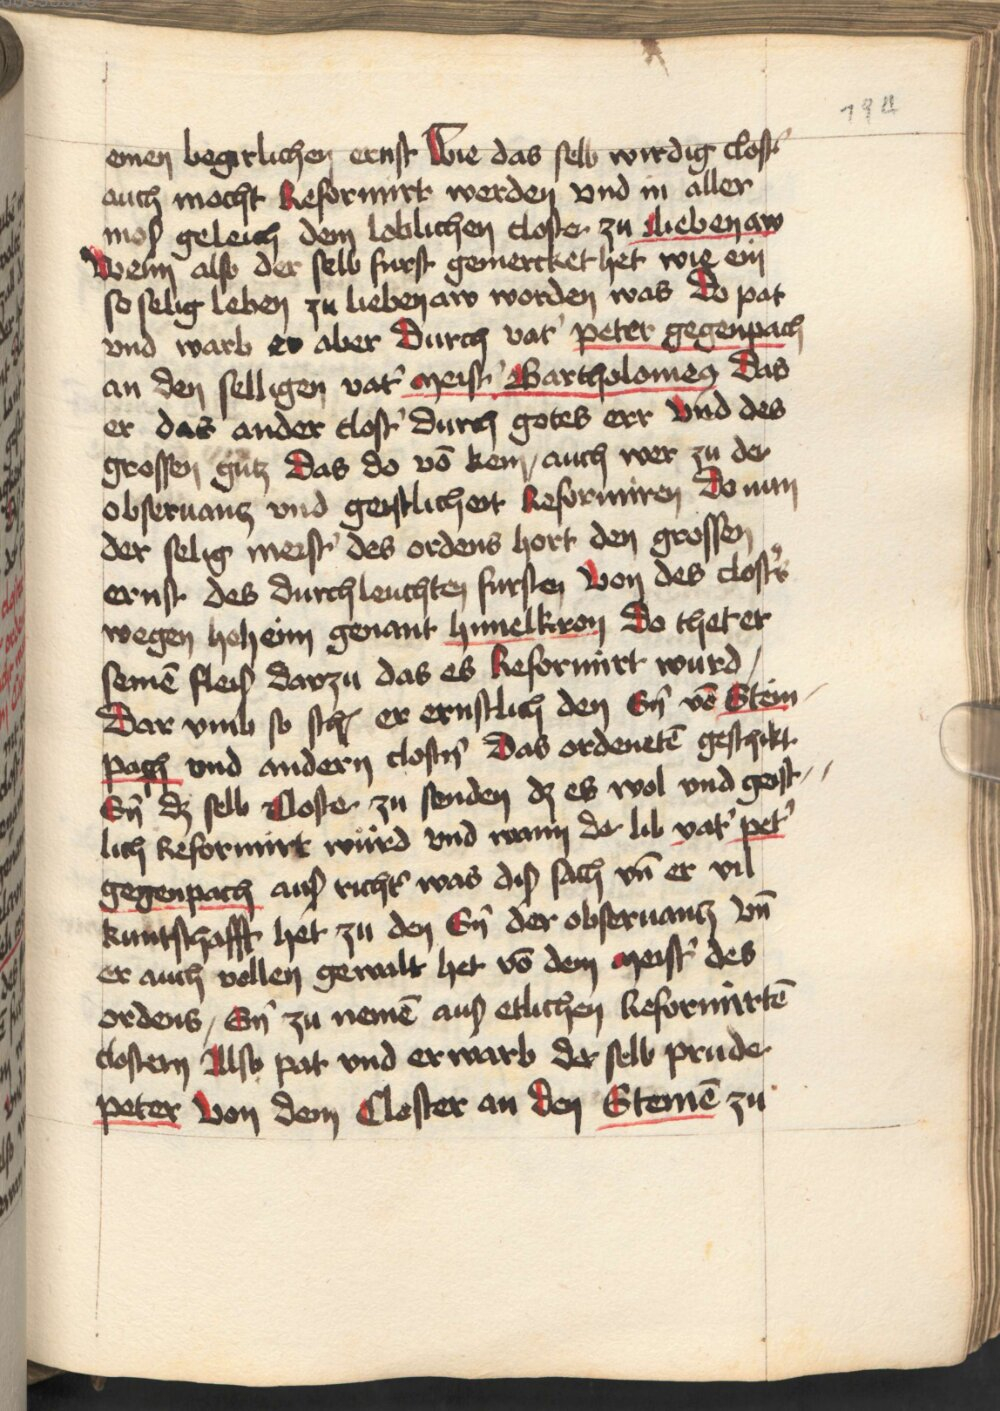 194
einen begirlichen ernst Wie das selb wirdig clost'
auch mocht Reformirt werden vnd in aller
moß geleich dem loblichen closter zu Liebenaw
Wenn also der selb furst gemercket het wie ein
so selig leben zu liebenaw worden was Do pat
vnd warb er aber Durch vat' peter gegenpach
an den selligen vat' meist' Bartholomeꝰ Das
er das ander clost' durch gotes err Vnd des
grossen gutz Das do võ kem / auch wer zu der
obseruantz vnd geistlicheit Reformiren Do nun
der selig meist' des ordens hort den grossen
ernst des durchleuchten fursten Von des clost's
wegen hoheim genant himelkron Do thet er
seinē fleiß darzu das es Reformirt wurd /
Dar vmb so er ernstlich den Sn̄ võ Stein
pach vnd andern clostn' Das ordenetē geschikt
Sn̄ dz selb Closter zu senden dz es wol vnd geist
lich Reformirt würd vnd wann der lib vat' pet'
gegenpach auß richt' was diß sach vn̄ er vil
kuntschafft het zu den Sn̄ der obseruantz Vn̄
er auch vollen gewalt het võ dem meist' des
ordens / Sn̄ zu nemē auß etlichen Reformirtē
clostern Also pat vnd erwarb der selb pruder
peter Von dem Closter an den Steinē zu